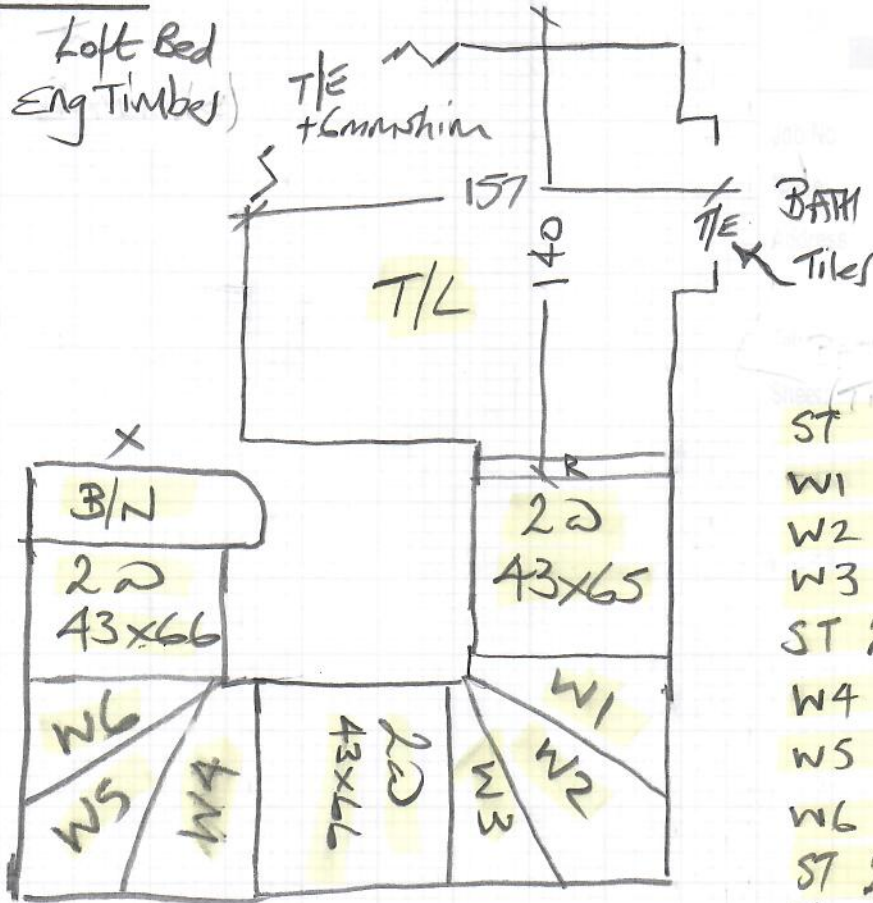 Loft Bed
Eng Timber)
T/E
+6mm shim
157
140
T/E
BATH
Tiles
T/L
X
B/N
R
2
43x65
2
43x66
2
43x66
W6
W5
W4
W3
W2
W1
ST
W1
W2
W3
ST 2
W4
W5
W6
ST